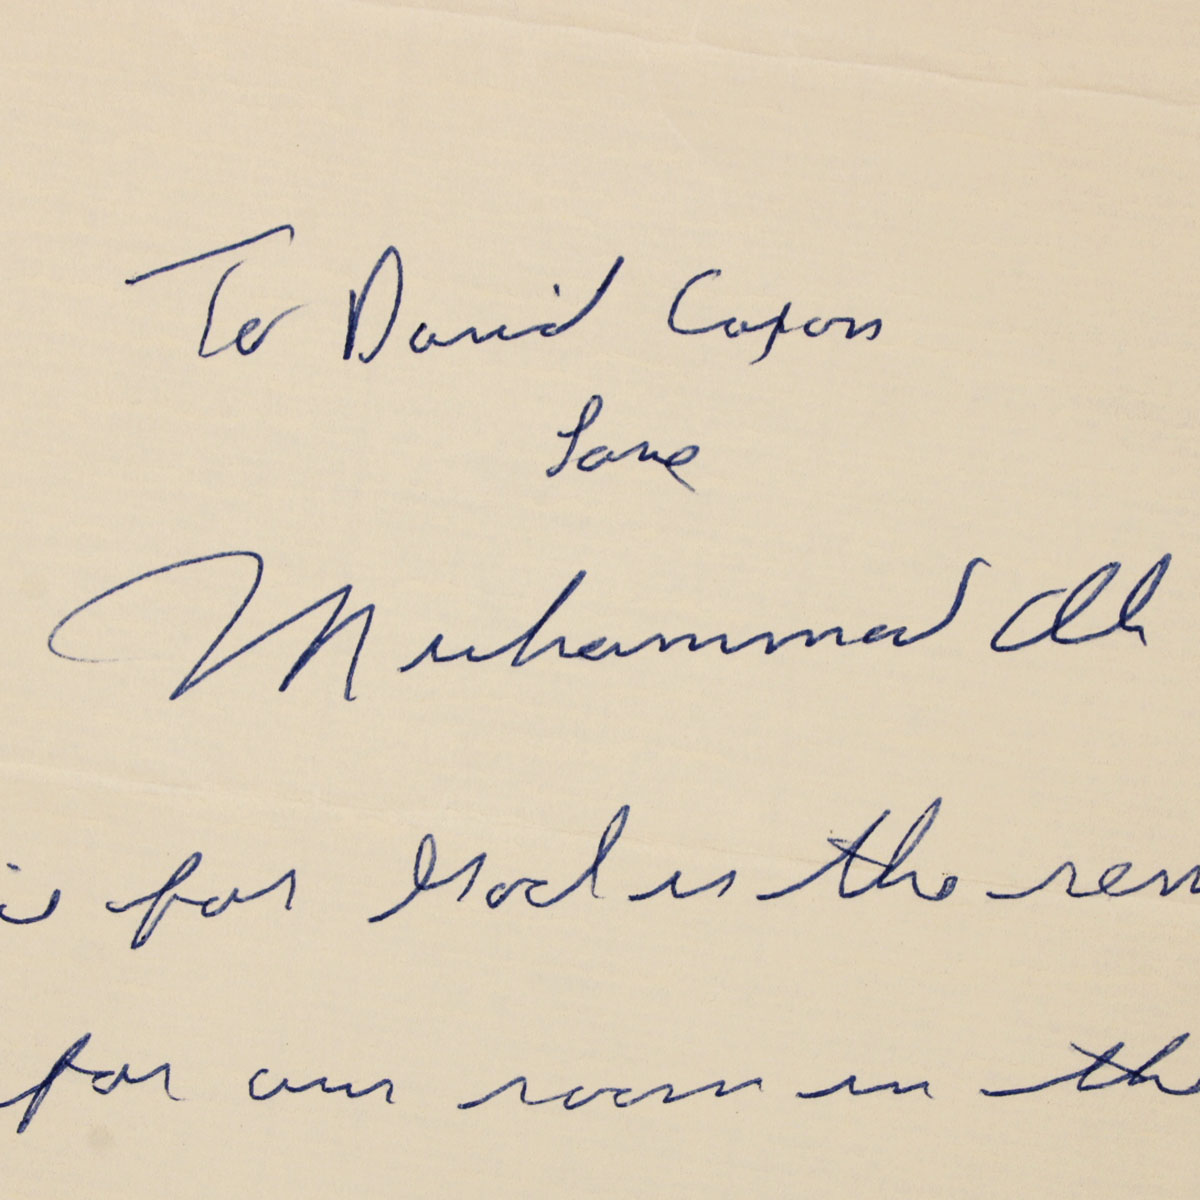 To David Capon
Love
Muhammad Ali
is for God is the ren
for our room in the